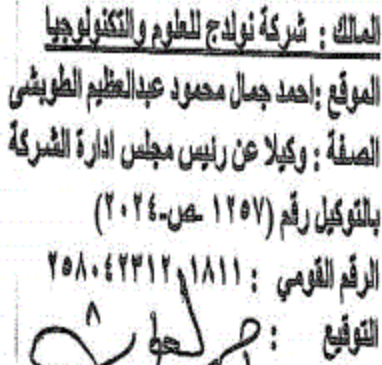 المالك : شركة نولدج للعلوم والتكنولوجيا
الموقع :احمد جمال محمود عبدالعظيم الطوبشى
الصفة : وكيلا عن رئيس مجلس ادارة الشركة
بالتوكيل رقم (١٢٥٧ -ص-٢٠٢٤)
الرقم القومي : ٢٥٨٠٤٢٣١٢٠١٨١١
التوقيع :